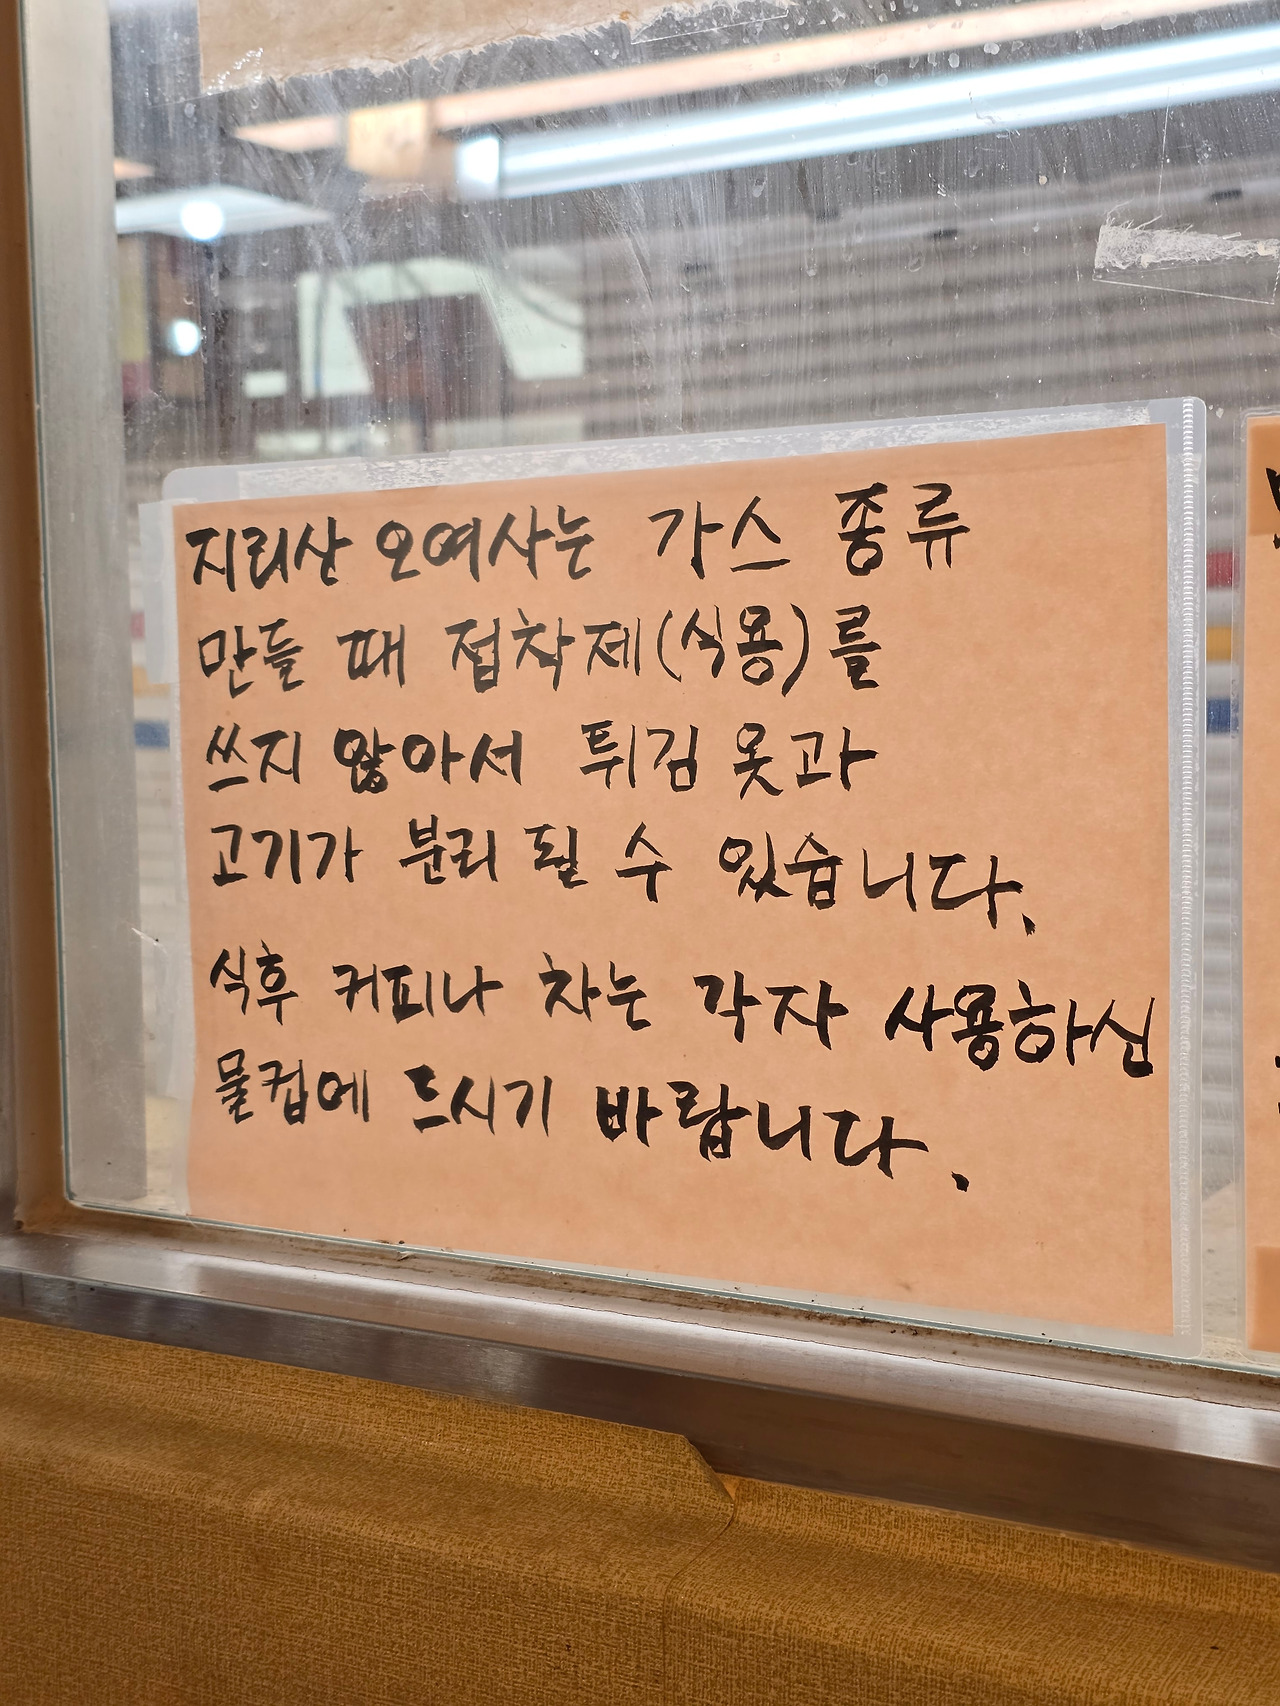 지리산 오여사는 가스 종류
만들 때 접착제(식용)를
쓰지 않아서 튀김 옷과
고기가 분리 될 수 있습니다.
식후 커피나 차는 각자 사용하신
물컵에 드시기 바랍니다.